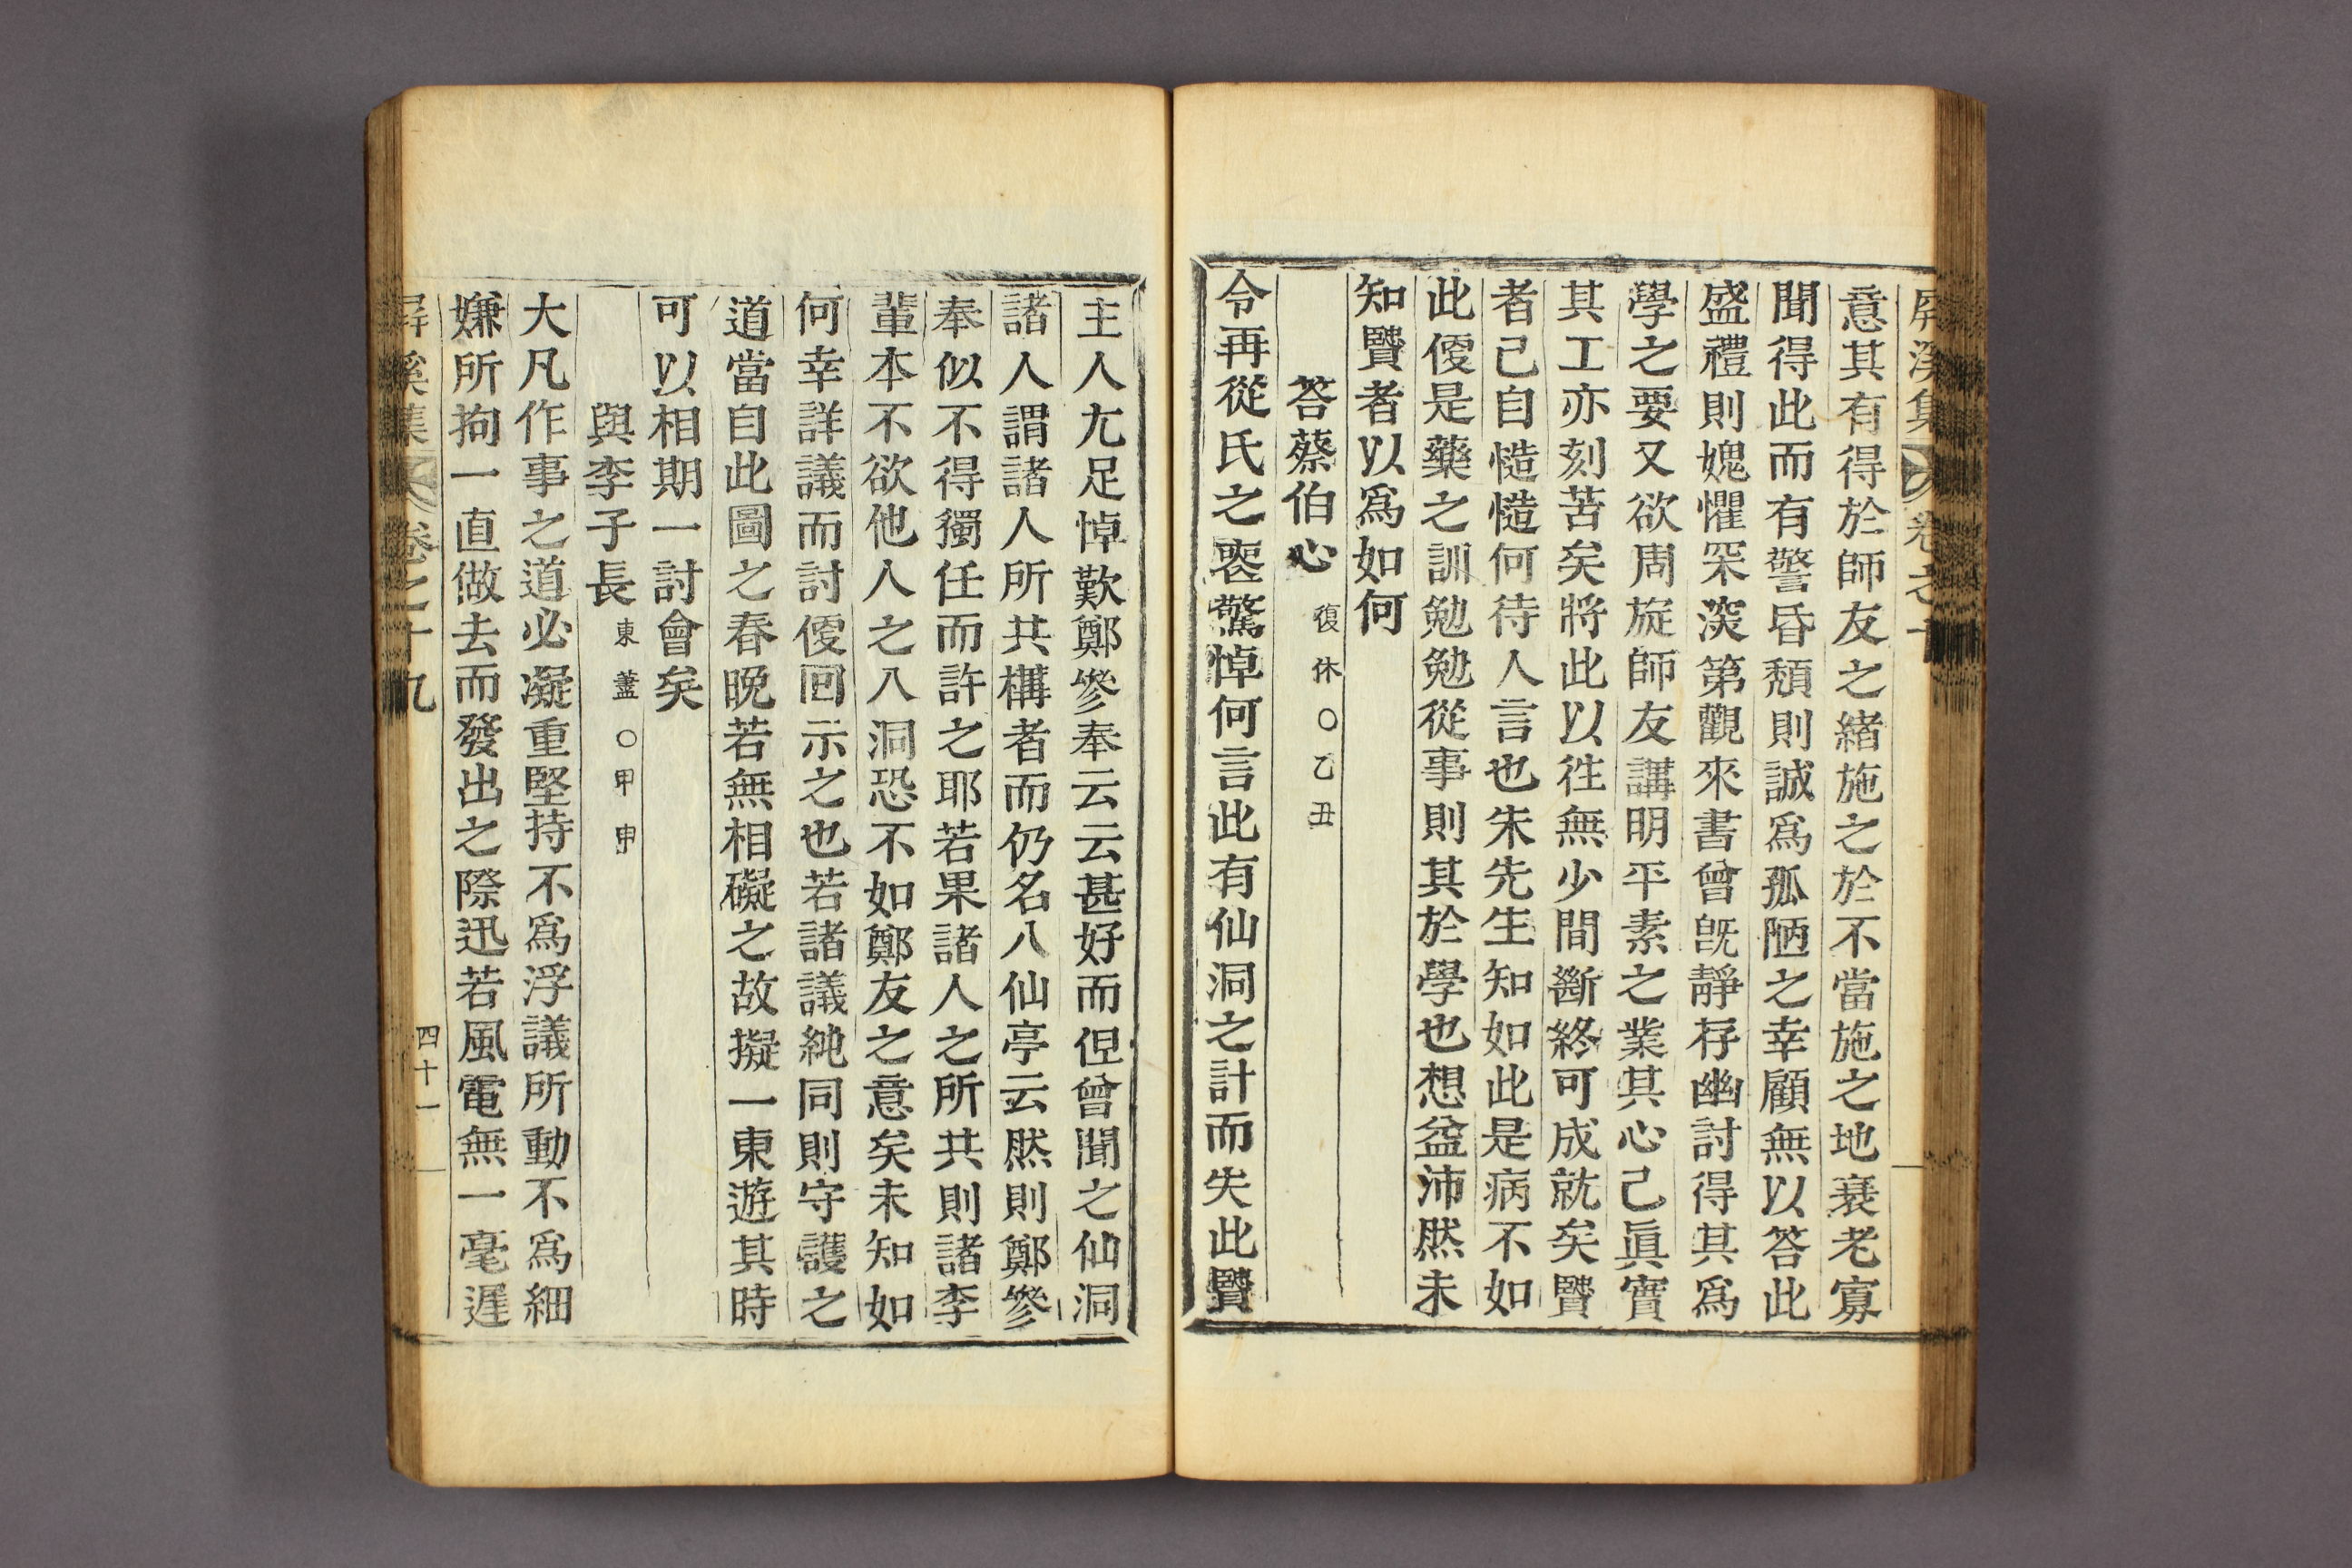 屏溪集 卷之十
意其有得於師友之緖施之於不當施之地衰老寡
聞得此而有警昏頹則誠爲孤陋之幸顧無以答此
盛禮則媿懼罙深第觀來書曾旣靜存幽討得其爲
學之要又欲周旋師友講明平素之業其心己眞實
其工亦刻苦矣將此以徃無少間斷終可成就矣賢
者己自慥慥何待人言也朱先生知如此是病不如
此便是藥之訓勉勉從事則其於學也想益沛然未
知賢者以爲如何
答蔡伯心 復休○乙丑
令再從氏之喪驚悼何言此有仙洞之計而失此賢
主人尤足悼歎鄭參奉云云甚好而但曾聞之仙洞
諸人謂諸人所共構者而仍名八仙亭云然則鄭參
奉似不得獨任而許之耶若果諸人之所共則諸李
輩本不欲他人之入洞恐不如鄭友之意矣未知如
何幸詳議而討便回示之也若諸議純同則守護之
道當自此圖之春晩若無相礙之故擬一東遊其時
可以相期一討會矣
與李子長 東藎○甲申
大凡作事之道必凝重堅持不爲浮議所動不爲細
嫌所拘一直做去而發出之際迅若風電無一毫遲
屏溪集 卷之十九 四十一